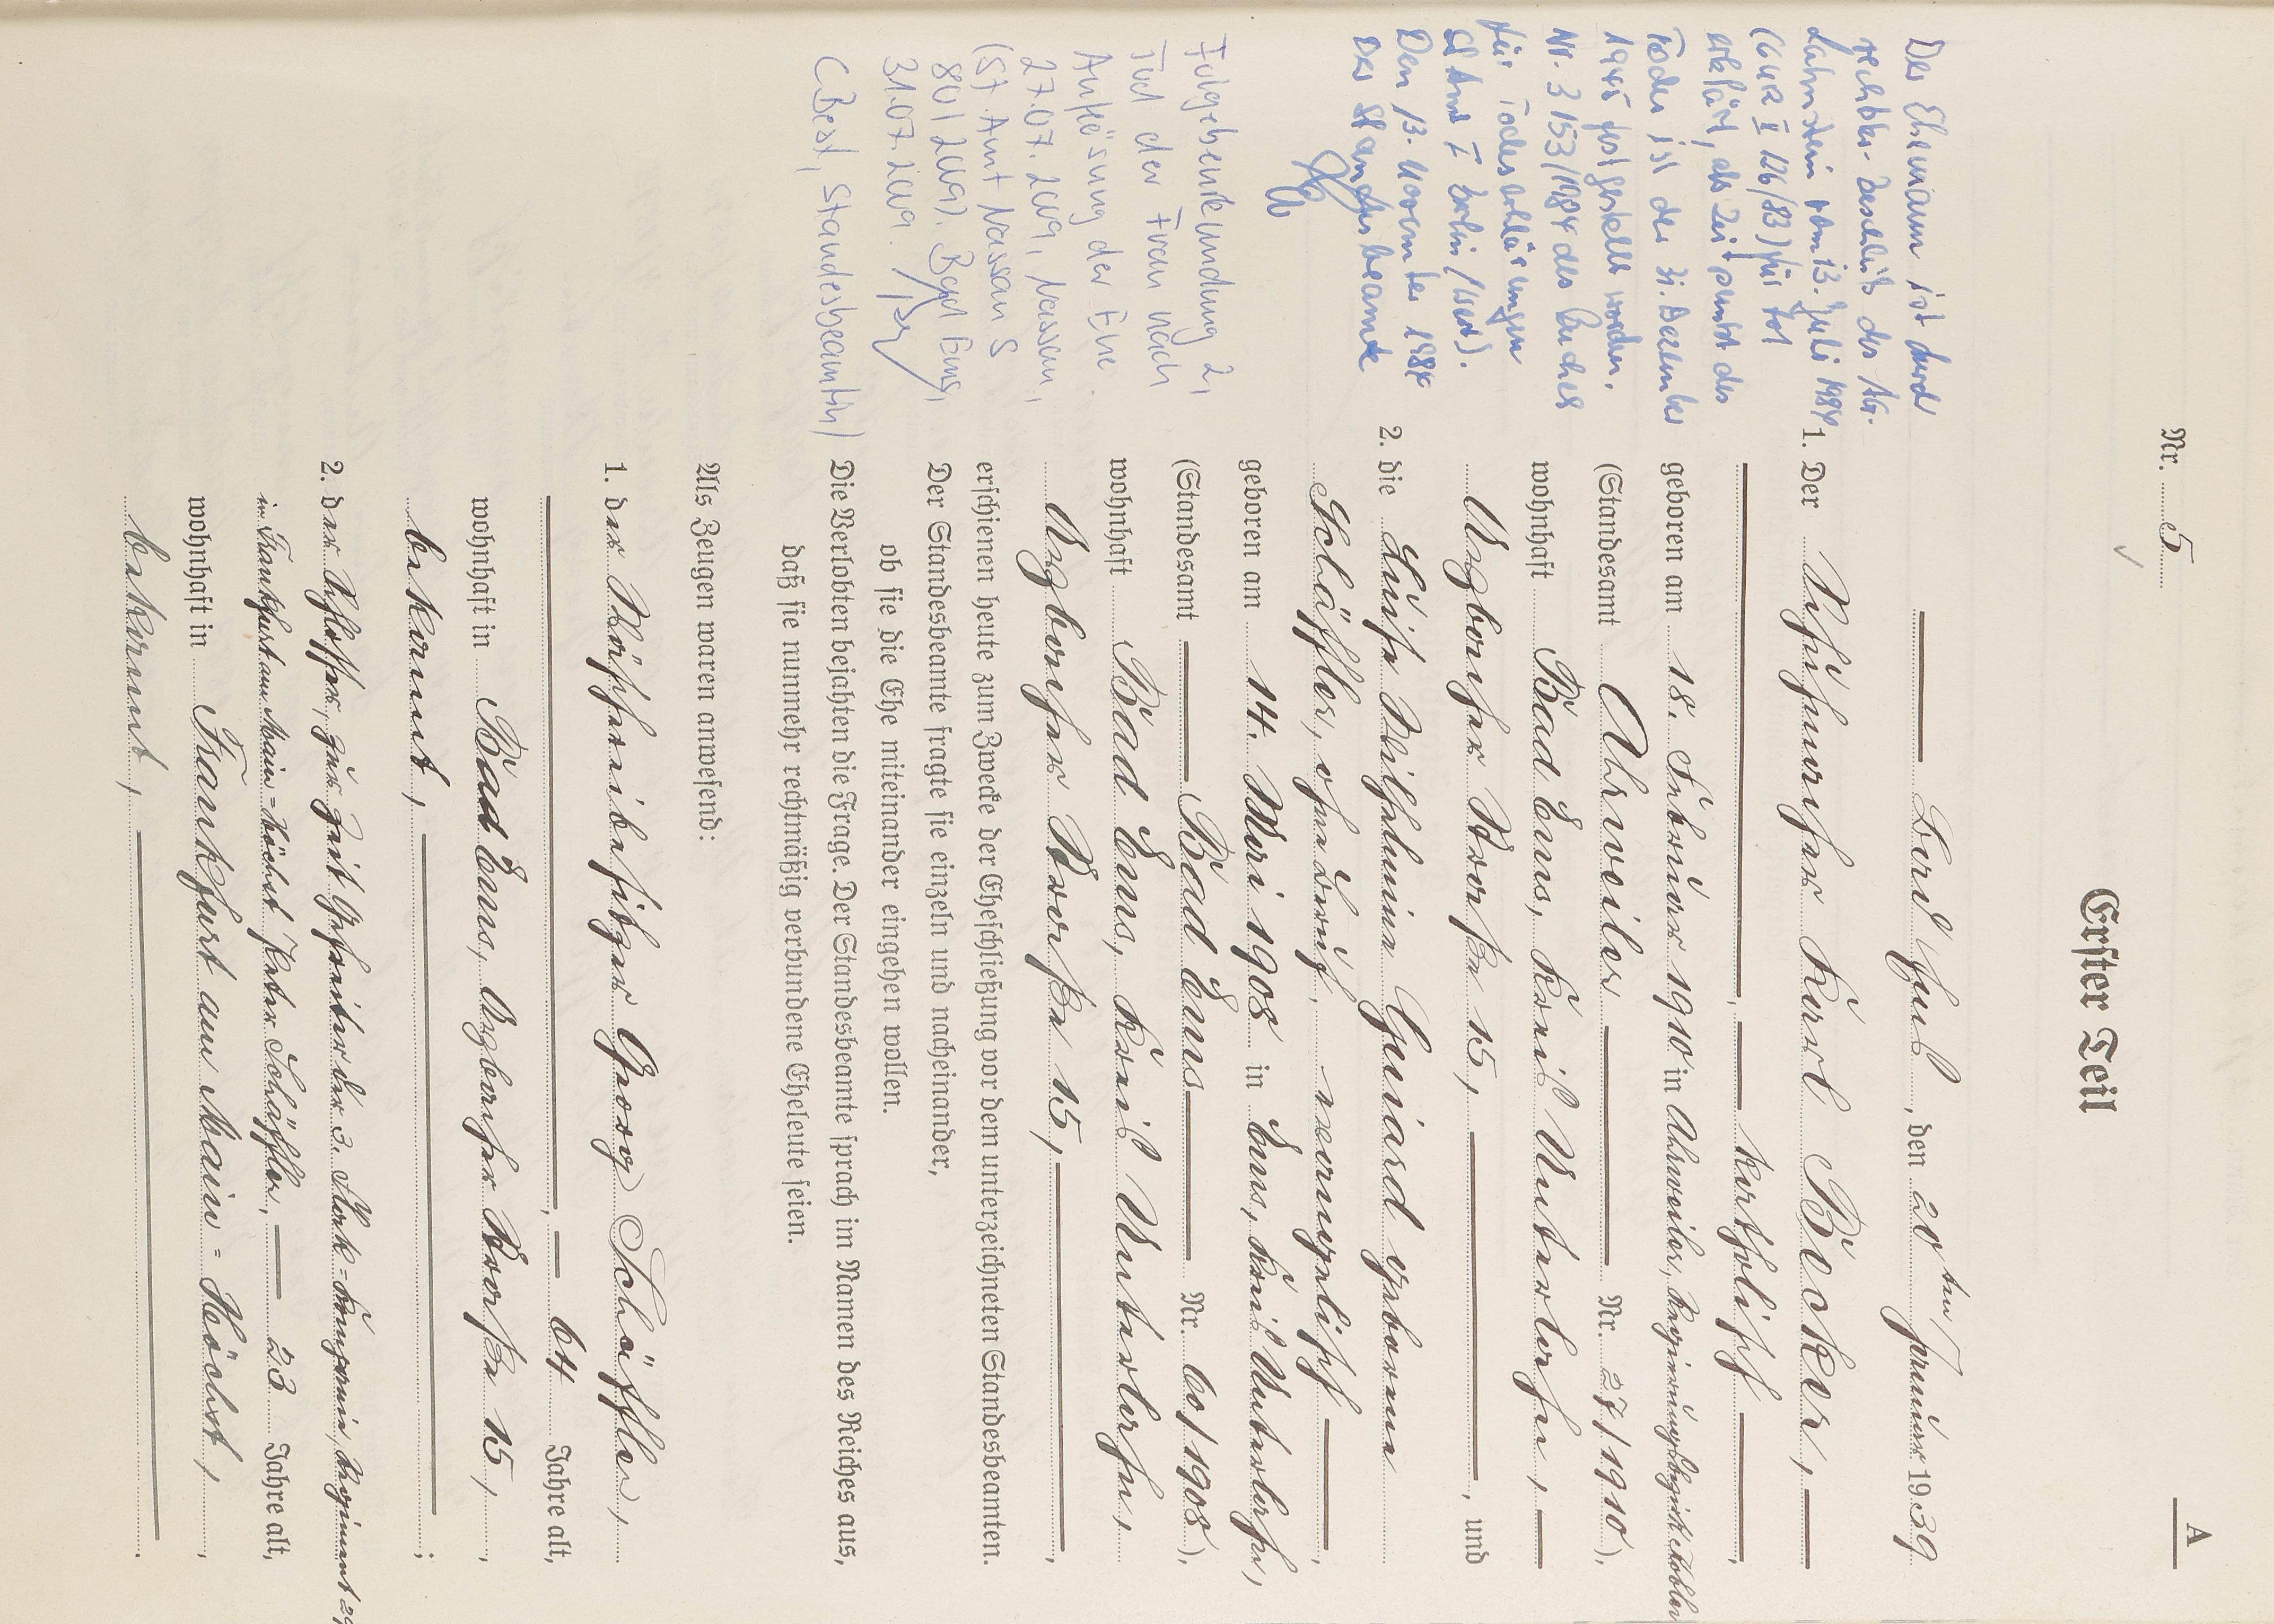 A
Nr. 5
Erster Teil
Bad Ems, den 20ten Januar 1939
1. Der Schuhmacher Karl Becker,
, katholisch
geboren am 18. Februar 1910 in Ahrweiler, Regierungsbezirk Koblenz
(Standesamt Ahrweiler Nr. 27/1910),
wohnhaft Bad Ems, Kreis Unterlahn,
Arzbacher Straße 15, , und
2. die Luise Wilhelmine Gerard geborene
Schäffler, ohne Beruf, evangelisch,
geboren am 14. Mai 1908 in Ems, Kreis Unterlahn,
(Standesamt Bad Ems Nr. 60/1908),
wohnhaft Bad Ems, Kreis Unterlahn,
Arzbacher Straße 15,
erschienen heute zum Zwecke der Eheschließung vor dem unterzeichneten Standesbeamten.
Der Standesbeamte fragte sie einzeln und nacheinander,
ob sie die Ehe miteinander eingehen wollen.
Die Verlobten bejahten die Frage. Der Standesbeamte sprach im Namen des Reiches aus,
daß sie nunmehr rechtmäßig verbundene Eheleute seien.
Als Zeugen waren anwesend:
1. der Wäschereibesitzer Georg Schäffler,
, 64 Jahre alt,
wohnhaft in Bad Ems, Arzbacher Straße 15,
bekannt, ;
2. der Schlosser, zur Zeit Gefreiter der 3. Flak-Kompanie, Regiment
in Frankfurt am Main-Höchst Peter Schäffler, 23 Jahre alt,
wohnhaft in Frankfurt am Main-Höchst,
bekannt,
Der Ehemann ist durch
rechtskr. Beschluß des AG.
Lahnstein vom 13. Juli 1984
(6 UR II 126/83) für tot
erklärt, als Zeitpunkt des
Todes ist der 31. Dezember
1945 festgestellt worden.
Nr. 3153/1984 des Buches
für Todeserklärungen
St Amt I Berlin (West).
Den 13. November 1984
Der Standesbeamte
Folgebeurkundung 2,
Tod der Frau nach
Auflösung der Ehe.
27.07.2009, Nassau,
(St.Amt Nassau S
80/2009). Bad Ems,
31.07.2009.
(C.Best, Standesbeamtin)